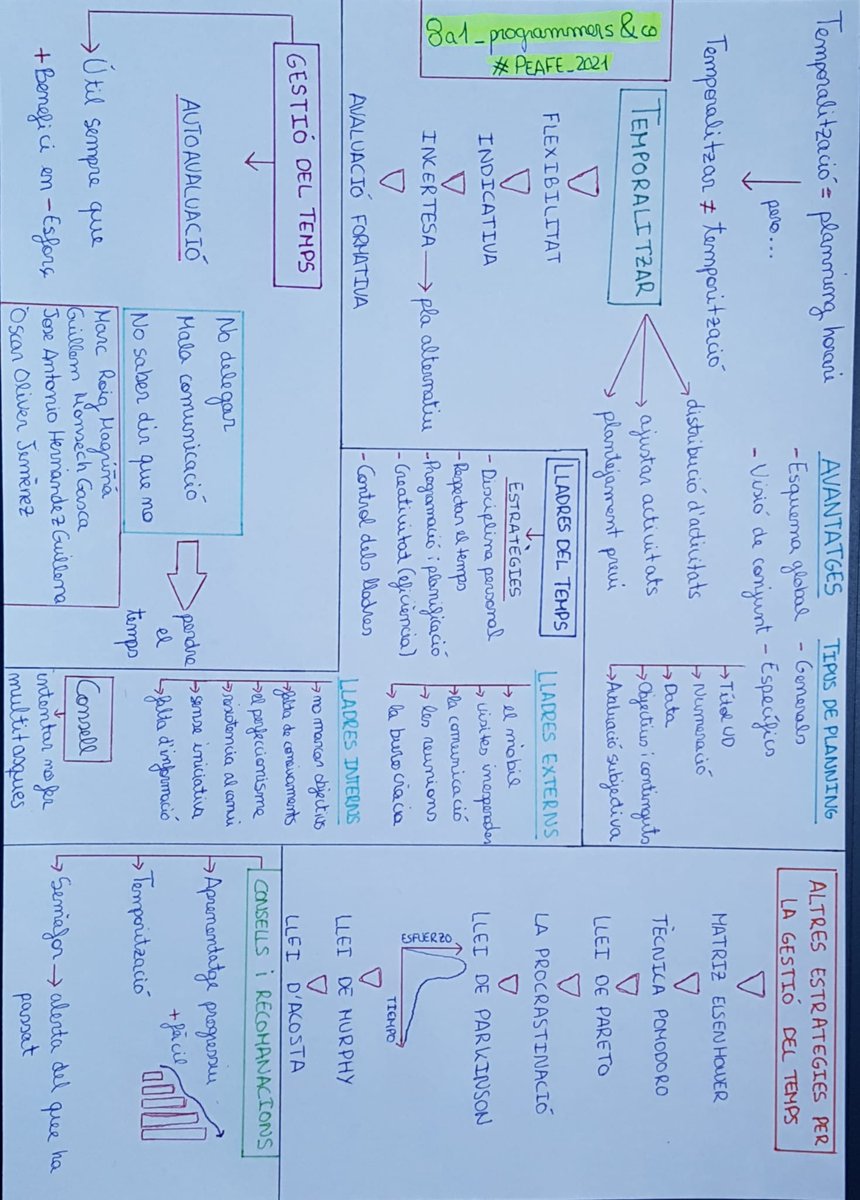 8a1_programmers & co
# PEAFE_2021
Temporalització = planning horari
però...
Temporalitzar ≠ temporització
TEMPORALITZAR
FLEXIBILITAT
INDICATIVA
INCERTESA → pla alternatiu
AVALUACIÓ FORMATIVA
distribució d'activitats
ajustar activitats
plantejament previ
AVANTATGES
- Esquema global
- Visió de conjunt
TIPUS DE PLANNING
- Generals
- Específics
Títol UD
Numeració
Data
Objectius i continguts
Avaluació subjectiva
GESTIÓ DEL TEMPS
AUTOAVALUACIÓ
Útil sempre que
+ Benefici en - Esforç
No delegar
Mala comunicació
No saber dir que no
perdre
el
temps
Marc Roig Magriñá
Guillem Monsech Gasca
Jose Antonio Hernàndez Guillema
Òscar Oliver Jiménez
LLADRES DEL TEMPS
ESTRATÈGIES
- Disciplina personal
- Respectar el temps
- Programació i planificació
- Creativitat (eficiència)
- Control dels lladres
LLADRES EXTERNS
el mòbil
visites inesperades
la comunicació
les reunions
la burocràcia
LLADRES INTERNS
no marcar objectius
falta de coneixements
el perfeccionisme
resistencia al canvi
sense iniciativa
falta d'informació
Consell
intentar no fer
multitasques
ALTRES ESTRATEGIES PER
LA GESTIÓ DEL TEMPS
MATRIZ EISENHOWER
TÈCNICA POMODORO
LLEI DE PARETO
LA PROCRASTINACIÓ
LLEI DE PARKINSON
ESFUERZO
TIEMPO
LLEI DE MURPHY
LLEI D'ACOSTA
CONSELLS i RECOMANACIONS
Aprenentatge progressiu
+ fàcil
Temporització
Semàfor → alerta del que ha
passat